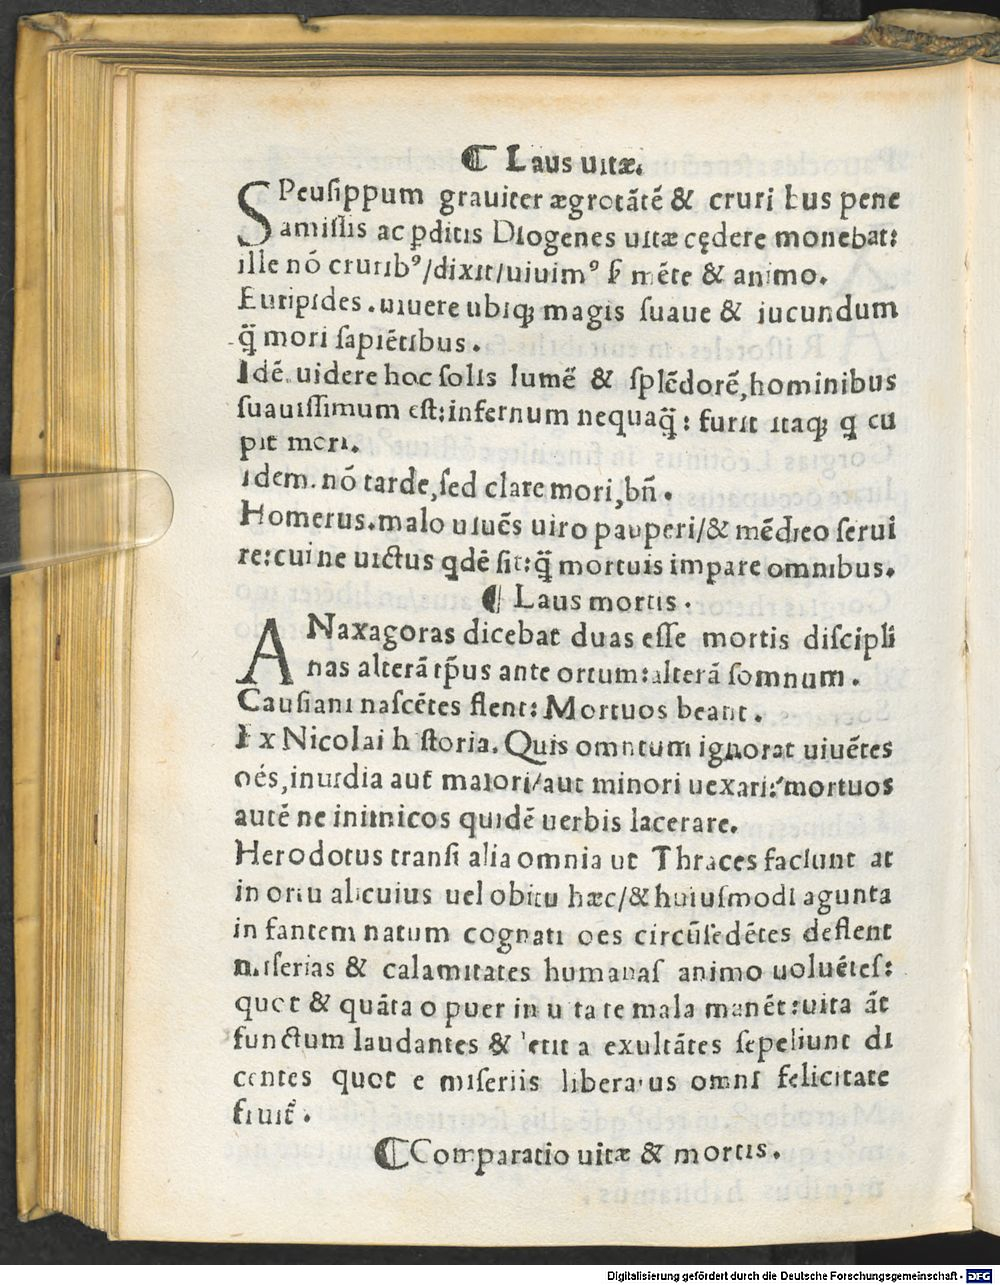 ⸿ Laus uitæ.
SPeusippum grauiter ægrotãtẽ & cruri bus pene
amissis ac ꝑditis Diogenes uitæ cędere monebat:
ille nõ crurib⁹/dixit/uiuim⁹ ſꝫ mẽte & animo.
Euripides. uiuere ubiqꝫ magis suaue & iucundum
q̃ mori sapiẽtibus.
Idẽ. uidere hoc solis lumẽ & splẽdorẽ, hominibus
suauissimum est: infernum nequaq̃: furit itaqꝫ q cu
pit mori.
Idem. nõ tarde, sed clare mori, bñ.
Homerus. malo uiuẽs uiro pauperi/& mẽdico serui
re: cui ne uictus qdẽ sit: q̃ mortuis impare omnibus.
⸿ Laus mortis.
ANaxagoras dicebat duas esse mortis discipli
nas alterã tp̃us ante ortum: alterã somnum.
Causiani nascẽtes flent: Mortuos beant.
Ex Nicolai historia. Quis omnium ignorat uiuẽtes
oẽs, inuidia aut maiori/aut minori uexari: mortuos
autẽ ne inimicos quidẽ uerbis lacerare.
Herodotus transi alia omnia ut Thraces faciunt at
in ortu alicuius uel obitu hæc/& huiusmodi agunta
in fantem natum cognati oes circũsedẽtes deflent
miserias & calamitates humanas animo uoluẽtes:
quot & quãta o puer in uita te mala manẽt: uita ãt
functum laudantes & letitia exultãtes sepeliunt di
centes quot e miseriis liberatus omni felicitate
fruit̃.
⸿ Comparatio uitæ & mortis.
Digitalisierung gefördert durch die Deutsche Forschungsgemeinschaft - DFG